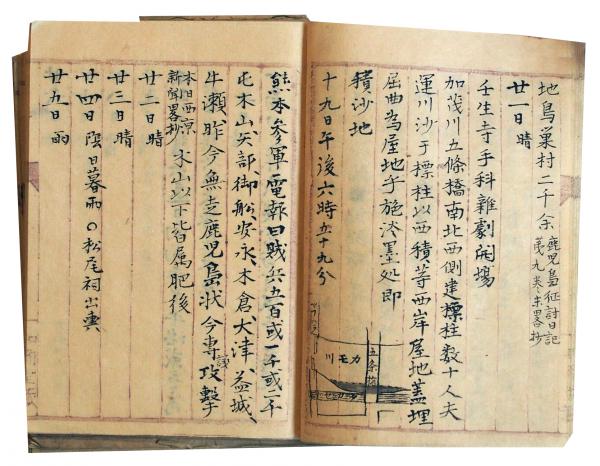 地鳥巣村二千余 鹿児島征討日記
第九・十号略抄
廿一日晴
壬生寺手科雑劇開場
加茂川五條橋南北西側建標柱数十人夫
運川沙于標柱以西積等西岸屋地蓋埋
屈曲為屋地乎施淡墨処即
積沙地
十九日午後六時五十九分
五条橋
カモ川
熊本参軍電報曰賊兵五百或一千或二千
屯木山、矢部、御船、安永、木倉、大津、益城、
牛瀬、昨今無走鹿児島状今専議攻撃
本日西京
新聞略抄
木山以下皆属肥後
廿二日晴
廿三日晴
廿四日陰日暮雨〇松尾祠出輿
廿五日雨